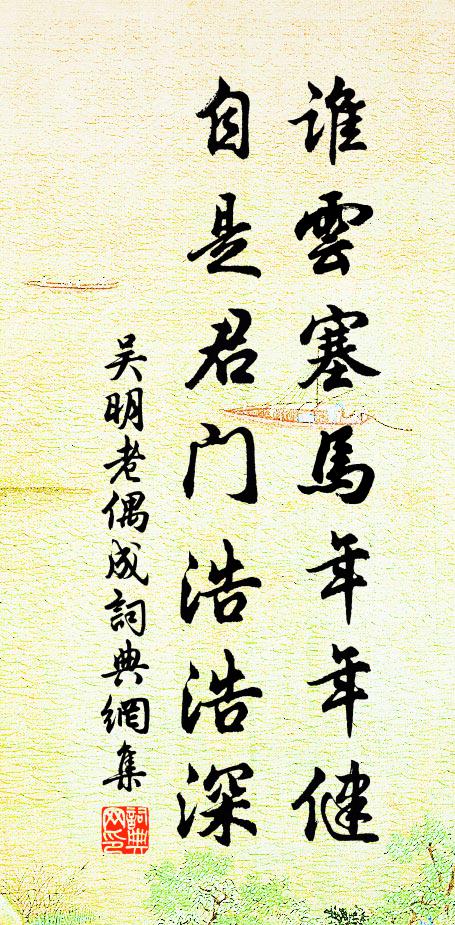 誰雲塞馬年年健
自是君门浩浩深
吴明老偶成詞典網集
詞典
网印